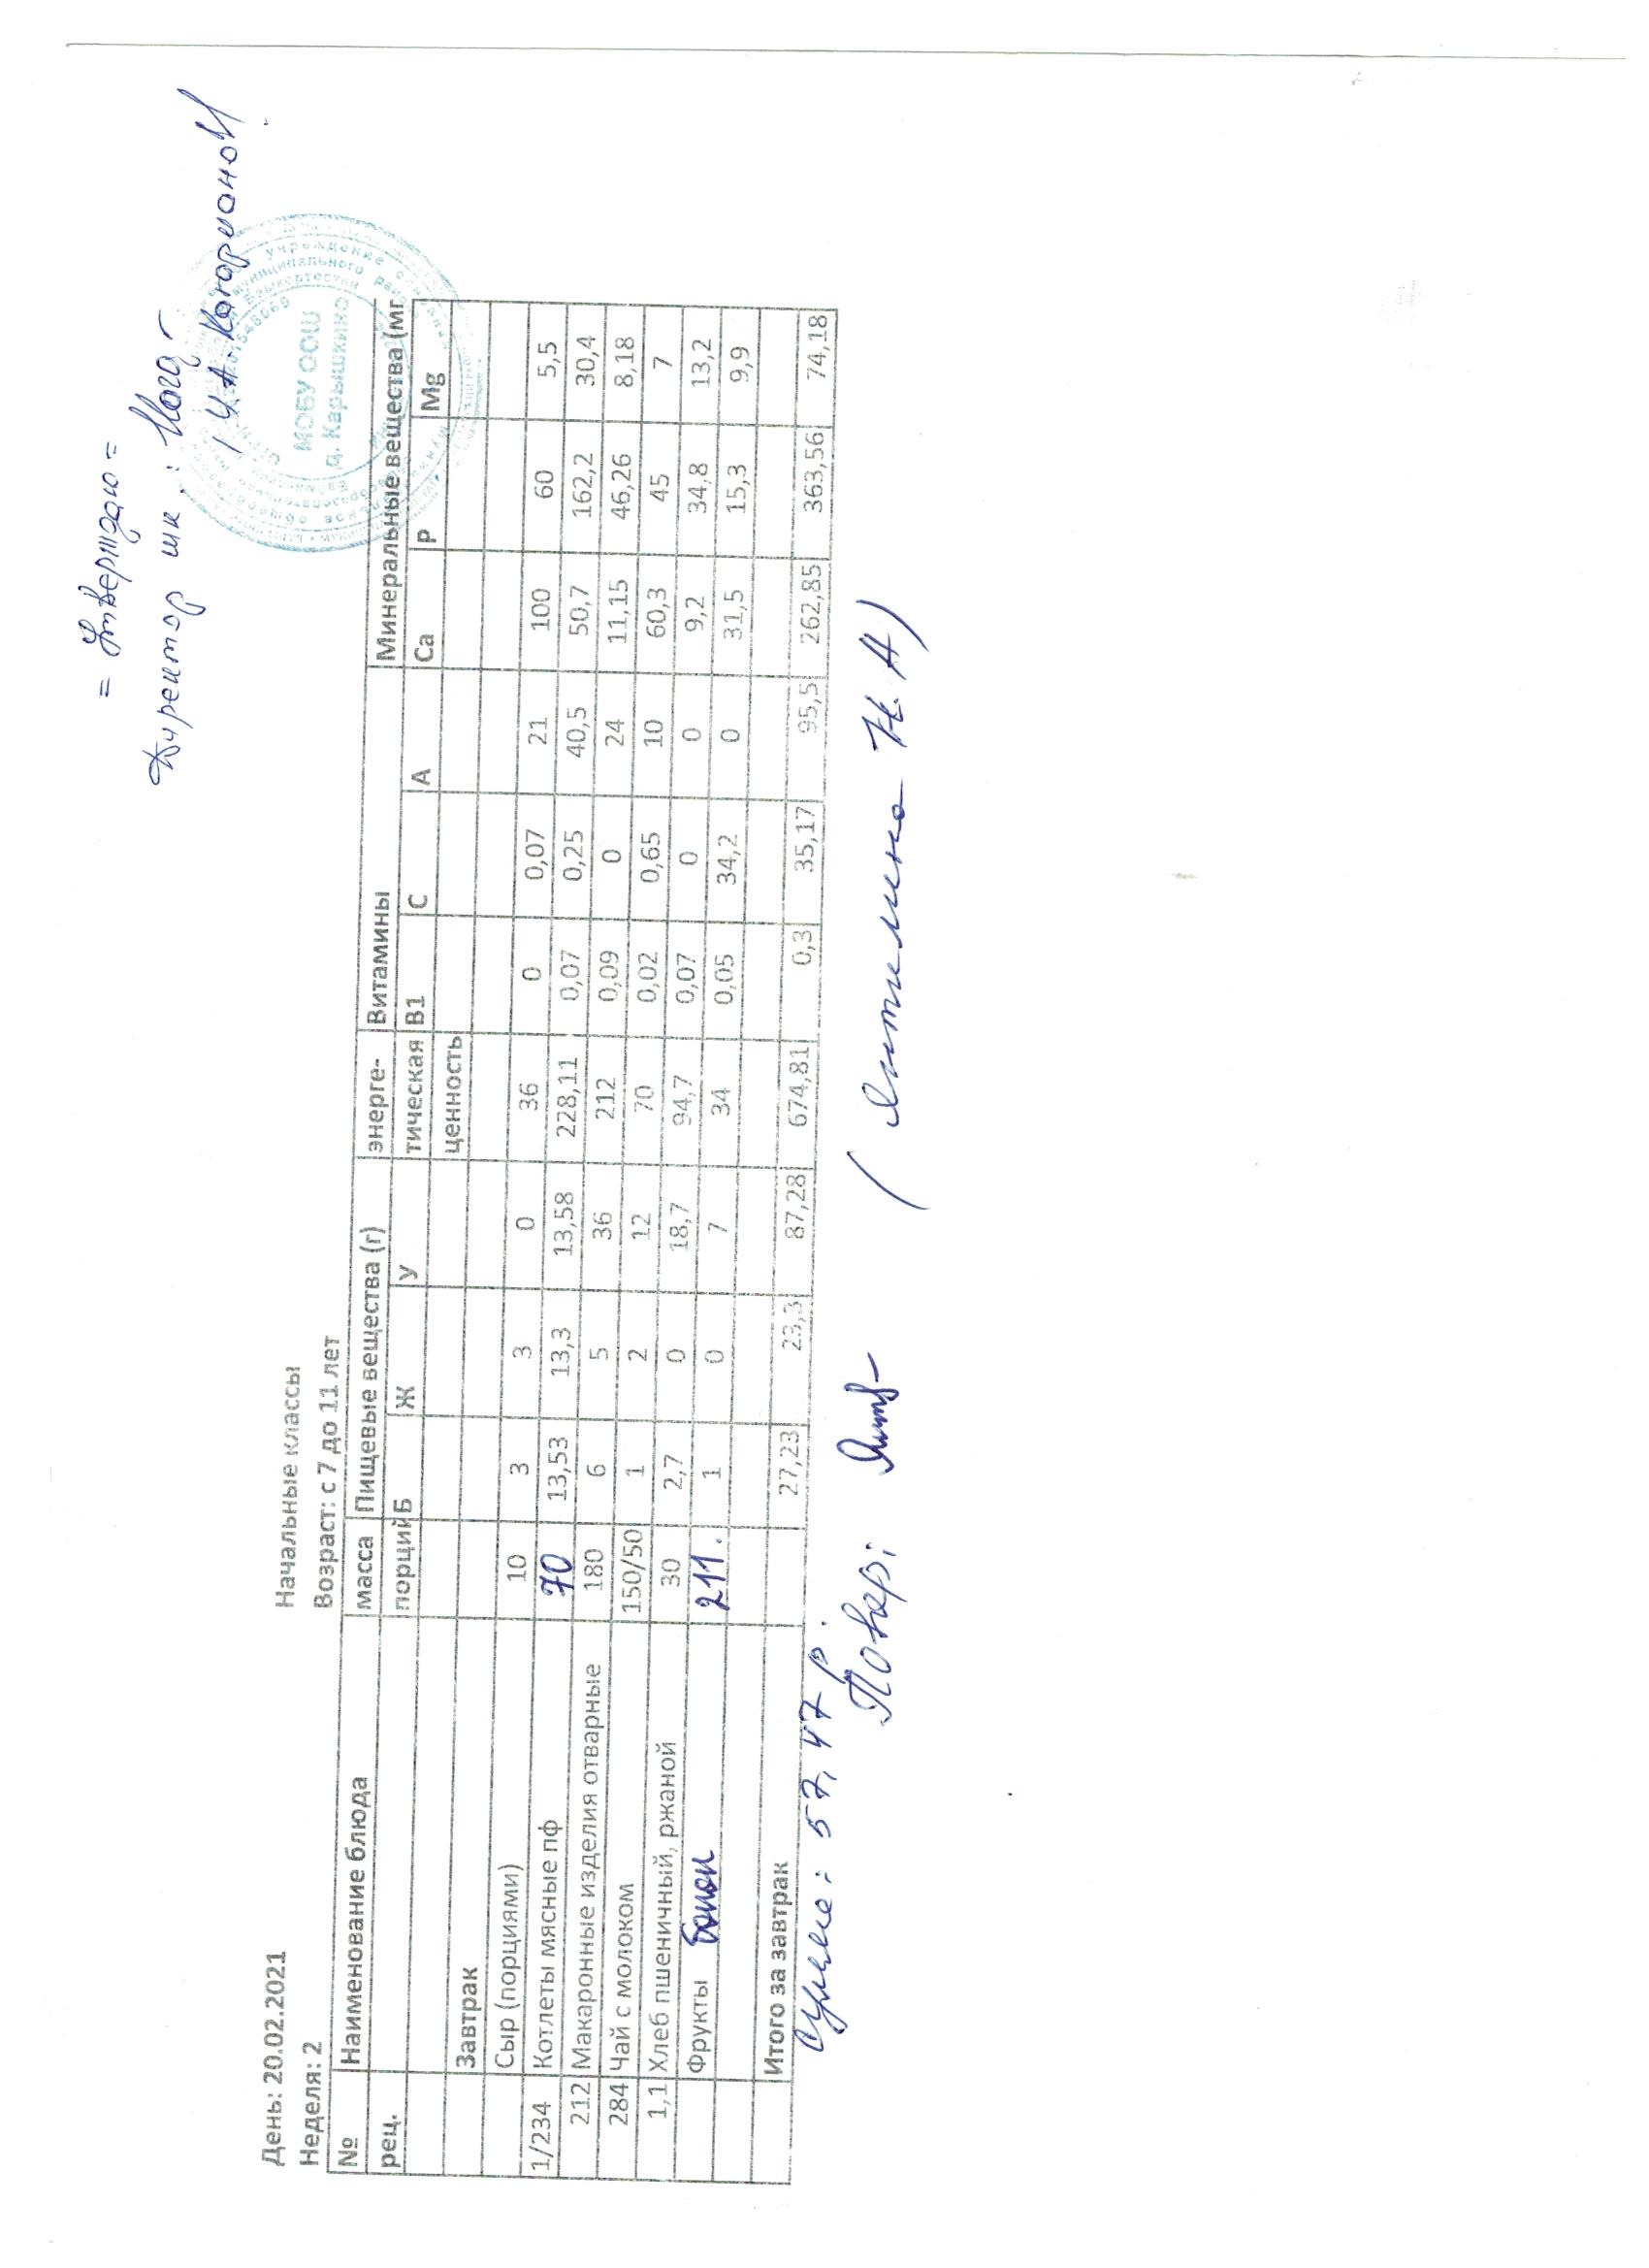 = Утверждаю =
Директор шк.:
День: 20.02.2021 Начальные классы
Неделя: 2 Возраст: с 7 до 11 лет
МОБУ ООШ
д. Карышкино
№ Наименование блюда масса Пищевые вещества (г) энерге- Витамины Минеральные вещества (мг
рец. порций Б Ж У тическая В1 С А Са Р Mg
ценность
Завтрак
Сыр (порциями) 10 3 3 0 36 0 0,07 21 100 60 5,5
1/234 Котлеты мясные пф 70 13,53 13,3 13,58 228,11 0,07 0,25 40,5 50,7 162,2 30,4
212 Макаронные изделия отварные 180 6 5 36 212 0,09 0 24 11,15 46,26 8,18
284 Чай с молоком 150/50 1 2 12 70 0,02 0,65 10 60,3 45 7
1,1 Хлеб пшеничный, ржаной 30 2,7 0 18,7 94,7 0,07 0 0 9,2 34,8 13,2
Фрукты банан 211. 1 0 7 34 0,05 34,2 0 31,5 15,3 9,9
Итого за завтрак 27,23 23,3 87,28 674,81 0,3 35,17 95,5 262,85 363,56 74,18
Сумма: 57,47 р.
Повар: (Янтилина Н.А)